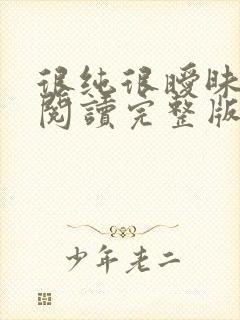 很纯很曖昧
閱讀完整版
少年老二